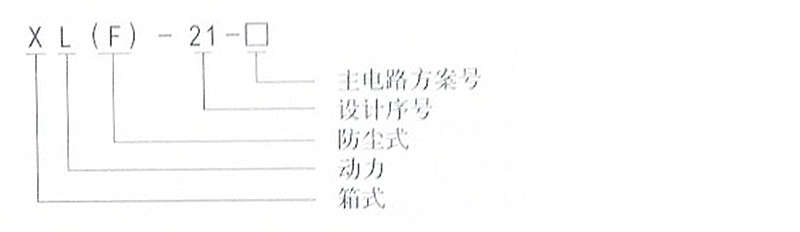 X L (F) - 21 - □
主电路方案号
设计序号
防尘式
动力
箱式